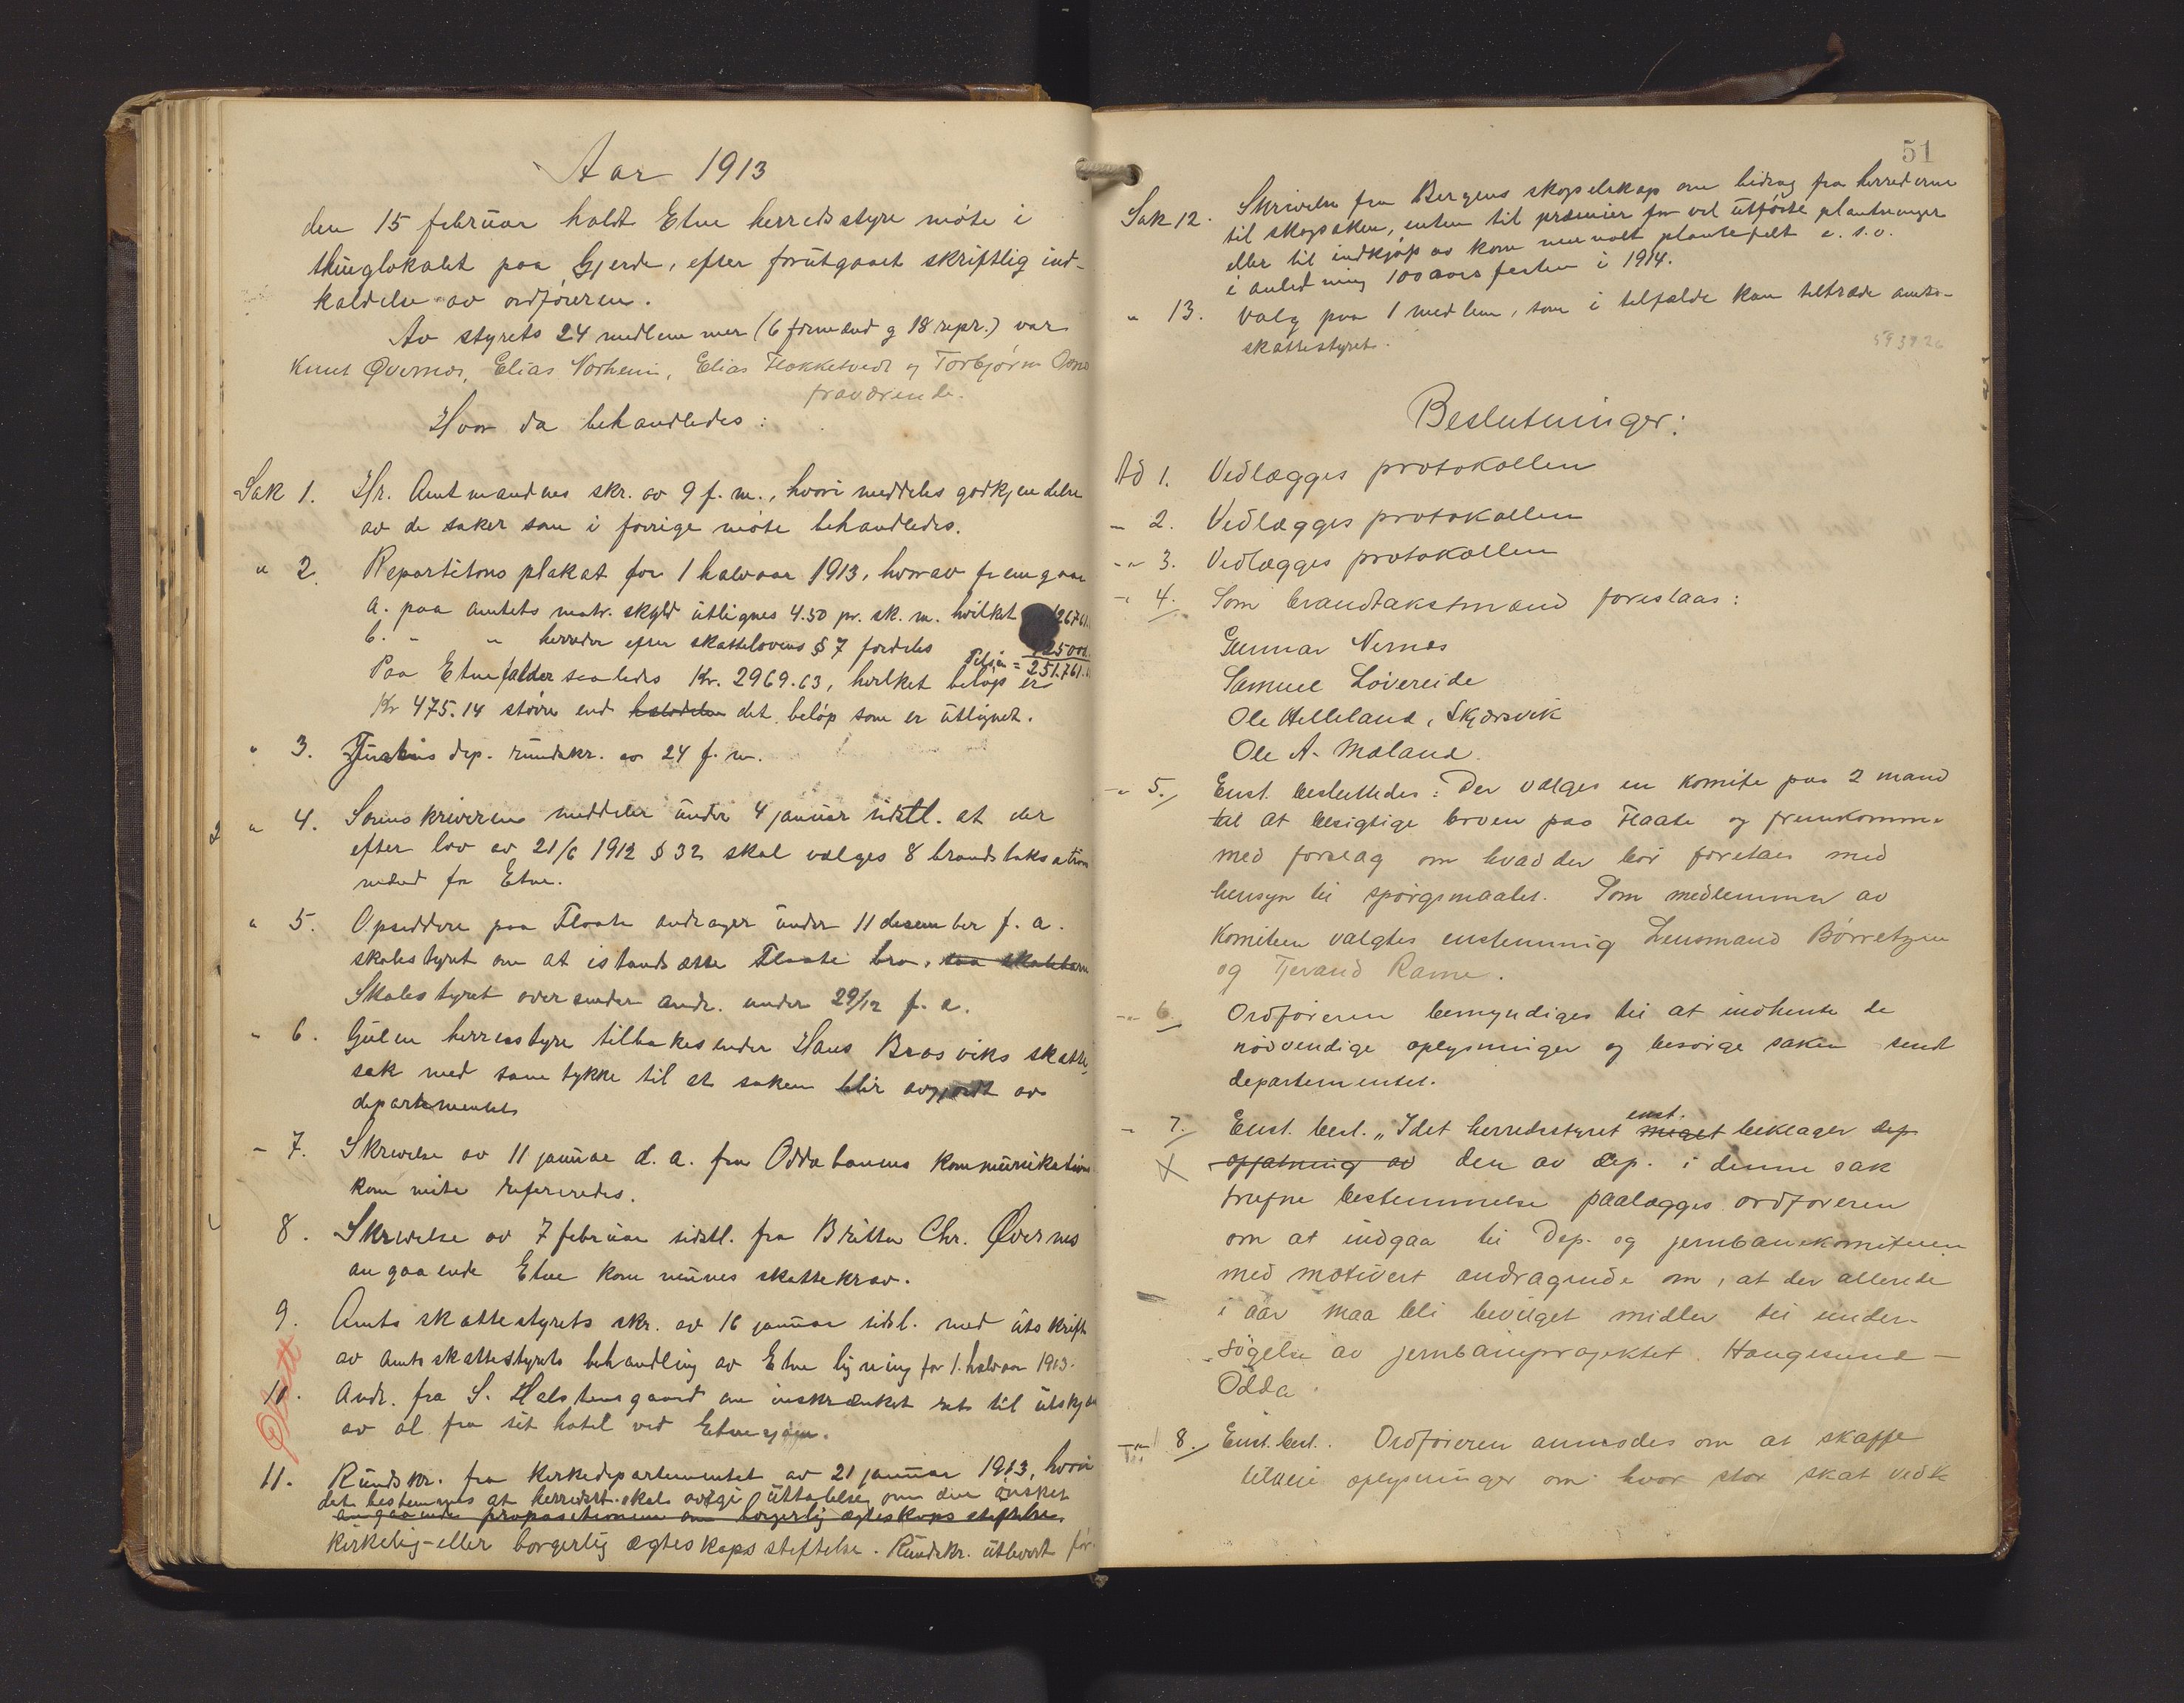 Aar 1913
den 15 februar holdt Etne herredsstyre møte i
thinglokalet paa Gjerde, efter forutgaaet skriftlig ind-
kaldelse av ordføreren.
Av styrets 24 medlemmer (6 formænd og 18 repr.) var
Knut Øvernes, Elias Norheim, Elias Flokketvedt og Torbjørn
fraværende.
Hvor da behandledes:
Sak 1. Hr. Amtmandens skr. av 9 f. m., hvori meddeles godkjendelse
av de saker som i forrige møte behandledes.
" 2. Repartitons plakat for 1 halvaar 1913, hvorav fremgaar
a. paa amtets matr. skyld utlignes 4.50 pr. sk. m. hvilket
b. - " herreder efter skattelovens § 7 fordeles 125000.
Tilsn = 251.761.
Paa Etne falder saaledes Kr. 2969.63, hvilket beløp er
Kr 475.14 større end halvdelen det beløp som er utlignet.
" 3. Justis dep. rundskr. av 24 f. m.
" 4. Sorenskriveren meddeler under 4 januar sidstl. at der
efter lov av 21/6 1912 § 32 skal vælges 8 brandstaksations
mænd for Etne.
" 5. Opsiddere paa Flaate andrager under 11 desember f. a.
skolestyret om at istandsætte Flaate bro. saa
Skolestyret oversender andr. under 29/12 f. a.
" 6. Gulen herredsstyre tilbakesender Hans Brosviks skatte-
sak med samtykke til at saken blir avgjordt av
departementet
- 7. Skrivelse av 11 januar d. a. fra Oddabanens kommunikations
komite refereredes.
8. Skrivelse av 7 februar sidstl. fra Britha Chr. Øvernes
angaaende Etne kommunes skattekrav.
9. Amtsskattestyrets skr. av 16 januar sidstl. med utskrift
av amtsskattestyrets behandling av Etne ligning for 1. halvaar 1913.
10. Andr. fra S. Halstensgaard om inskrænket ret til utskjænk
av øl fra sit hotel ved Etnesjøen.
Utsatt
11. Rundskr. fra Kirkedepartementet av 21 januar 1913, hvori
det bestemmes at herredst. skal avgi uttalelse om den ønsker
angaaende propositionen om borgerlig ægteskaps stiftelse
kirkelig- eller borgerlig ægteskaps stiftelse. Rundskr. utlevert før.
51
Sak 12. Skrivelse fra Bergens skogselskap om bidrag fra herrederne
til skogsaken, enten til præmier for vel utførte plantninger
eller til indkjøp av kommunalt plantefelt o. s. v.
i anledning 100 aars festen i 1914.
" 13. Valg paa 1 medlem, som i tilfælde kan tiltræde amts-
skattestyret.
Beslutninger:
Ad 1. Vedlægges protokollen
- 2. Vedlægges protokollen
-"- 3. Vedlægges protokollen
-" 4. Som brandtakstmænd foreslaas:
Gunnar Nernes
Samuel Løvereide
Ole Helleland, Skjærsvik
Ole A. Mæland.
-" 5. Enst. besluttedes: Der vælges en komite paa 2 mand
til at besigtige broen paa Flaate og fremkomme
med forslag om hvad der bør foretaes med
hensyn til spørgsmaalet. Som medlemmer av
komiteen valgtes enstemmig Lensmand Børretzen
og Tjerand Rame.
-"- 6. Ordføreren bemyndiges til at indhente de
nødvendige oplysninger og besørge saken sendt
departementet.
- 7. Enst. besl. „Idet herredsstyret enst. meget beklager dep
opfatning av den av dep. i denne sak
trufne bestemmelse paalægges ordføreren
om at indgaa til Dep. og jernbanekomiteen
med motivert andragende om, at der allerede
i aar maa bli bevilget midler til under-
søgelse av jernbaneprojektet Haugesund -
Odda.
-"- 8. Enst. besl. Ordføreren anmodes om at skaffe
tilveie oplysninger om hvor stor skat vedk